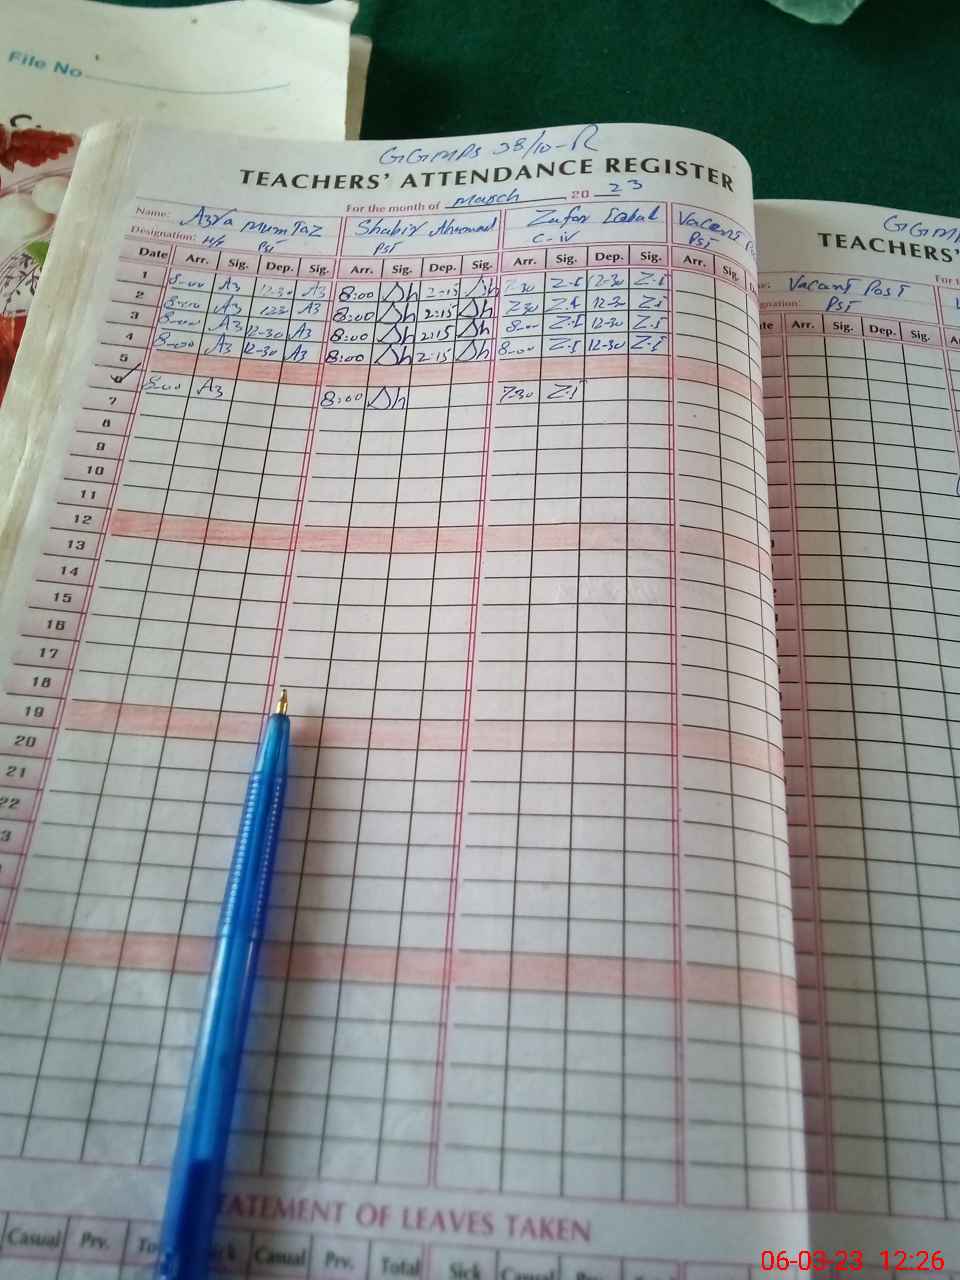 File No
GGMPS 38/10-R
TEACHERS' ATTENDANCE REGISTER
For the month of March 20 23
Name: Azra Mumtaz Shabir Ahmad Zufar Iqbal Vacant
Designation: PST PST C-iv PST
Date Arr. Sig. Dep. Sig. Arr. Sig. Dep. Sig. Arr. Sig. Dep. Sig. Arr. Sig.
1 8-00 A3 12-30 A3 8:00 Sh 2:15 Sh 7-30 Z-I 12-30 Z-I
2 8-00 A3 A3 8:00 Sh 2:15 Sh 7-30 Z-I 12-30 Z-I
3 8-00 A3 12-30 A3 8:00 Sh 2:15 Sh 8-00 Z-I 12-30 Z-I
4 8-00 A3 12-30 A3 8:00 Sh 2:15 Sh 8-00 Z-I 12-30 Z-I
5
6 8-00 A3 8:00 Sh 7-30 Z-I
7
8
9
10
11
12
13
14
15
16
17
18
19
20
21
22
3
STATEMENT OF LEAVES TAKEN
Casual Prv. Casual Prv. Total Sick Casual Prv.
GGM
TEACHERS'
Vacant Post
PST
Arr. Sig. Dep. Sig.
06-03-23 12:26